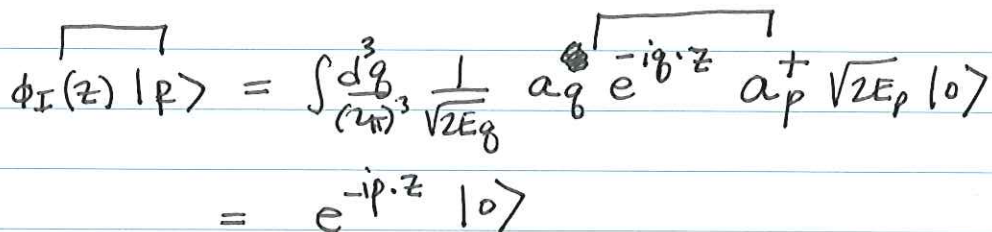 ϕ_I(z) |p⟩ = ∫ d³q/(2π)³ 1/√(2E_q) a_q e^{-iq·z} a_p^† √(2E_p) |0⟩
= e^{-ip·z} |0⟩